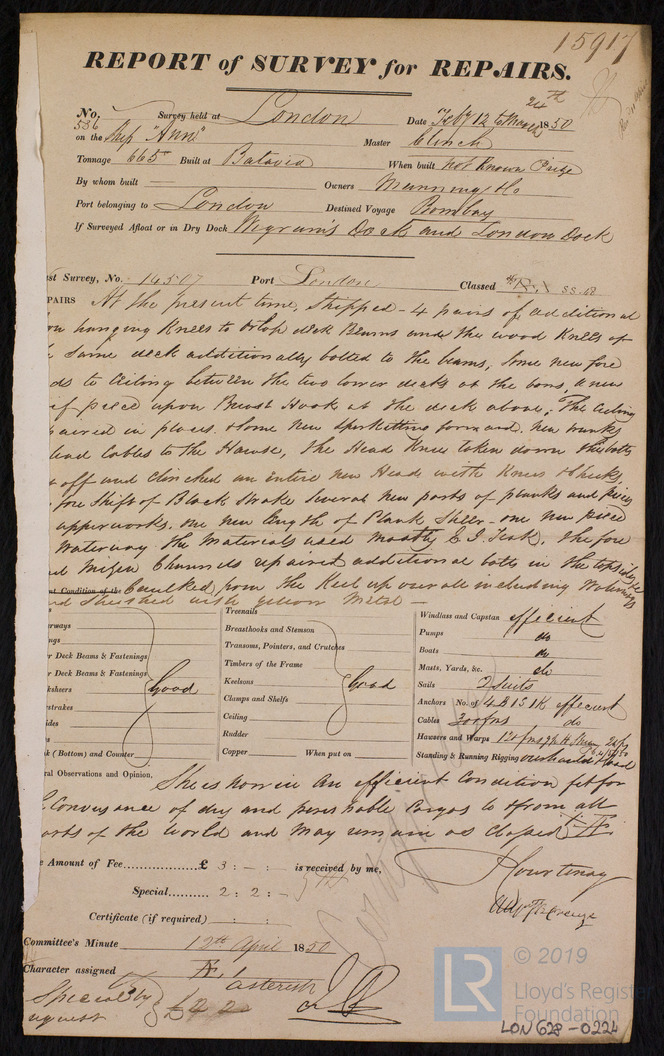 15917
REPORT of SURVEY for REPAIRS.
No. 536 Survey held at London Date Feby 12 to March 24th 1850
on the Ship "Ann" Master Clinch
Tonnage 665 Built at Batavia When built not known
By whom built — Owners Manning & Co
Port belonging to London Destined Voyage Bombay
If Surveyed Afloat or in Dry Dock Wigram's Dock and London Dock
st Survey, No. 14507 Port London Classed
PAIRS At the present time, Shipped - 4 pairs of additional
hanging Knees to Orlop deck Beams and the wood Knees of
same deck additionally bolted to the beams, Some new fore
ds to Ceiling between the two lower decks at the bows, a new
piece upon Breast Hook at the deck above, The Ceiling
paired in places. Some new Spirketting forward. new
lead Cables to the Hawse, The Head Knee taken down
off and clinched an entire new Head with Knees & Cheeks
fore Shift of Black Strake several new parts of planks and pieces
upperworks. one new length of Plank Sheer - one new piece
Waterway the Materials used mostly E I Teak, The fore
Mizen Channels repaired additional bolts in the topsides
nt Condition of the Caulked from the Keel up over all including Waterways
nd Sheathed with yellow Metal —
erways
ngs
r Deck Beams & Fastenings
r Deck Beams & Fastenings
ksheers
strakes
ides
s
k (Bottom) and Counter
Good
Treenails
Breasthooks and Stemson
Transoms, Pointers, and Crutches
Timbers of the Frame
Keelsons
Clamps and Shelfs
Ceiling
Rudder
Copper When put on
Good
Windlass and Capstan efficient
Pumps do
Boats do
Masts, Yards, &c. do
Sails 2 Suits
Anchors No. of 4 B 1 S 1 K efficient
Cables 300 fms do
Hawsers and Warps
Standing & Running Rigging overhauled & Good
ral Observations and Opinion, She is now in An efficient Condition fit for
Conveyance of dry and perishable Cargos to & from all
orts of the World and May remain as Classed
e Amount of Fee £ 3 : - : - is received by me,
Special 2 : 2 : -
Courtenay
Certificate (if required) : :
Committee's Minute 12th April 1850
Character assigned Æ, 1 asterisk
Special by request £ 2 2
LR
© 2019
Lloyd's Register
Foundation
LON 628-0224